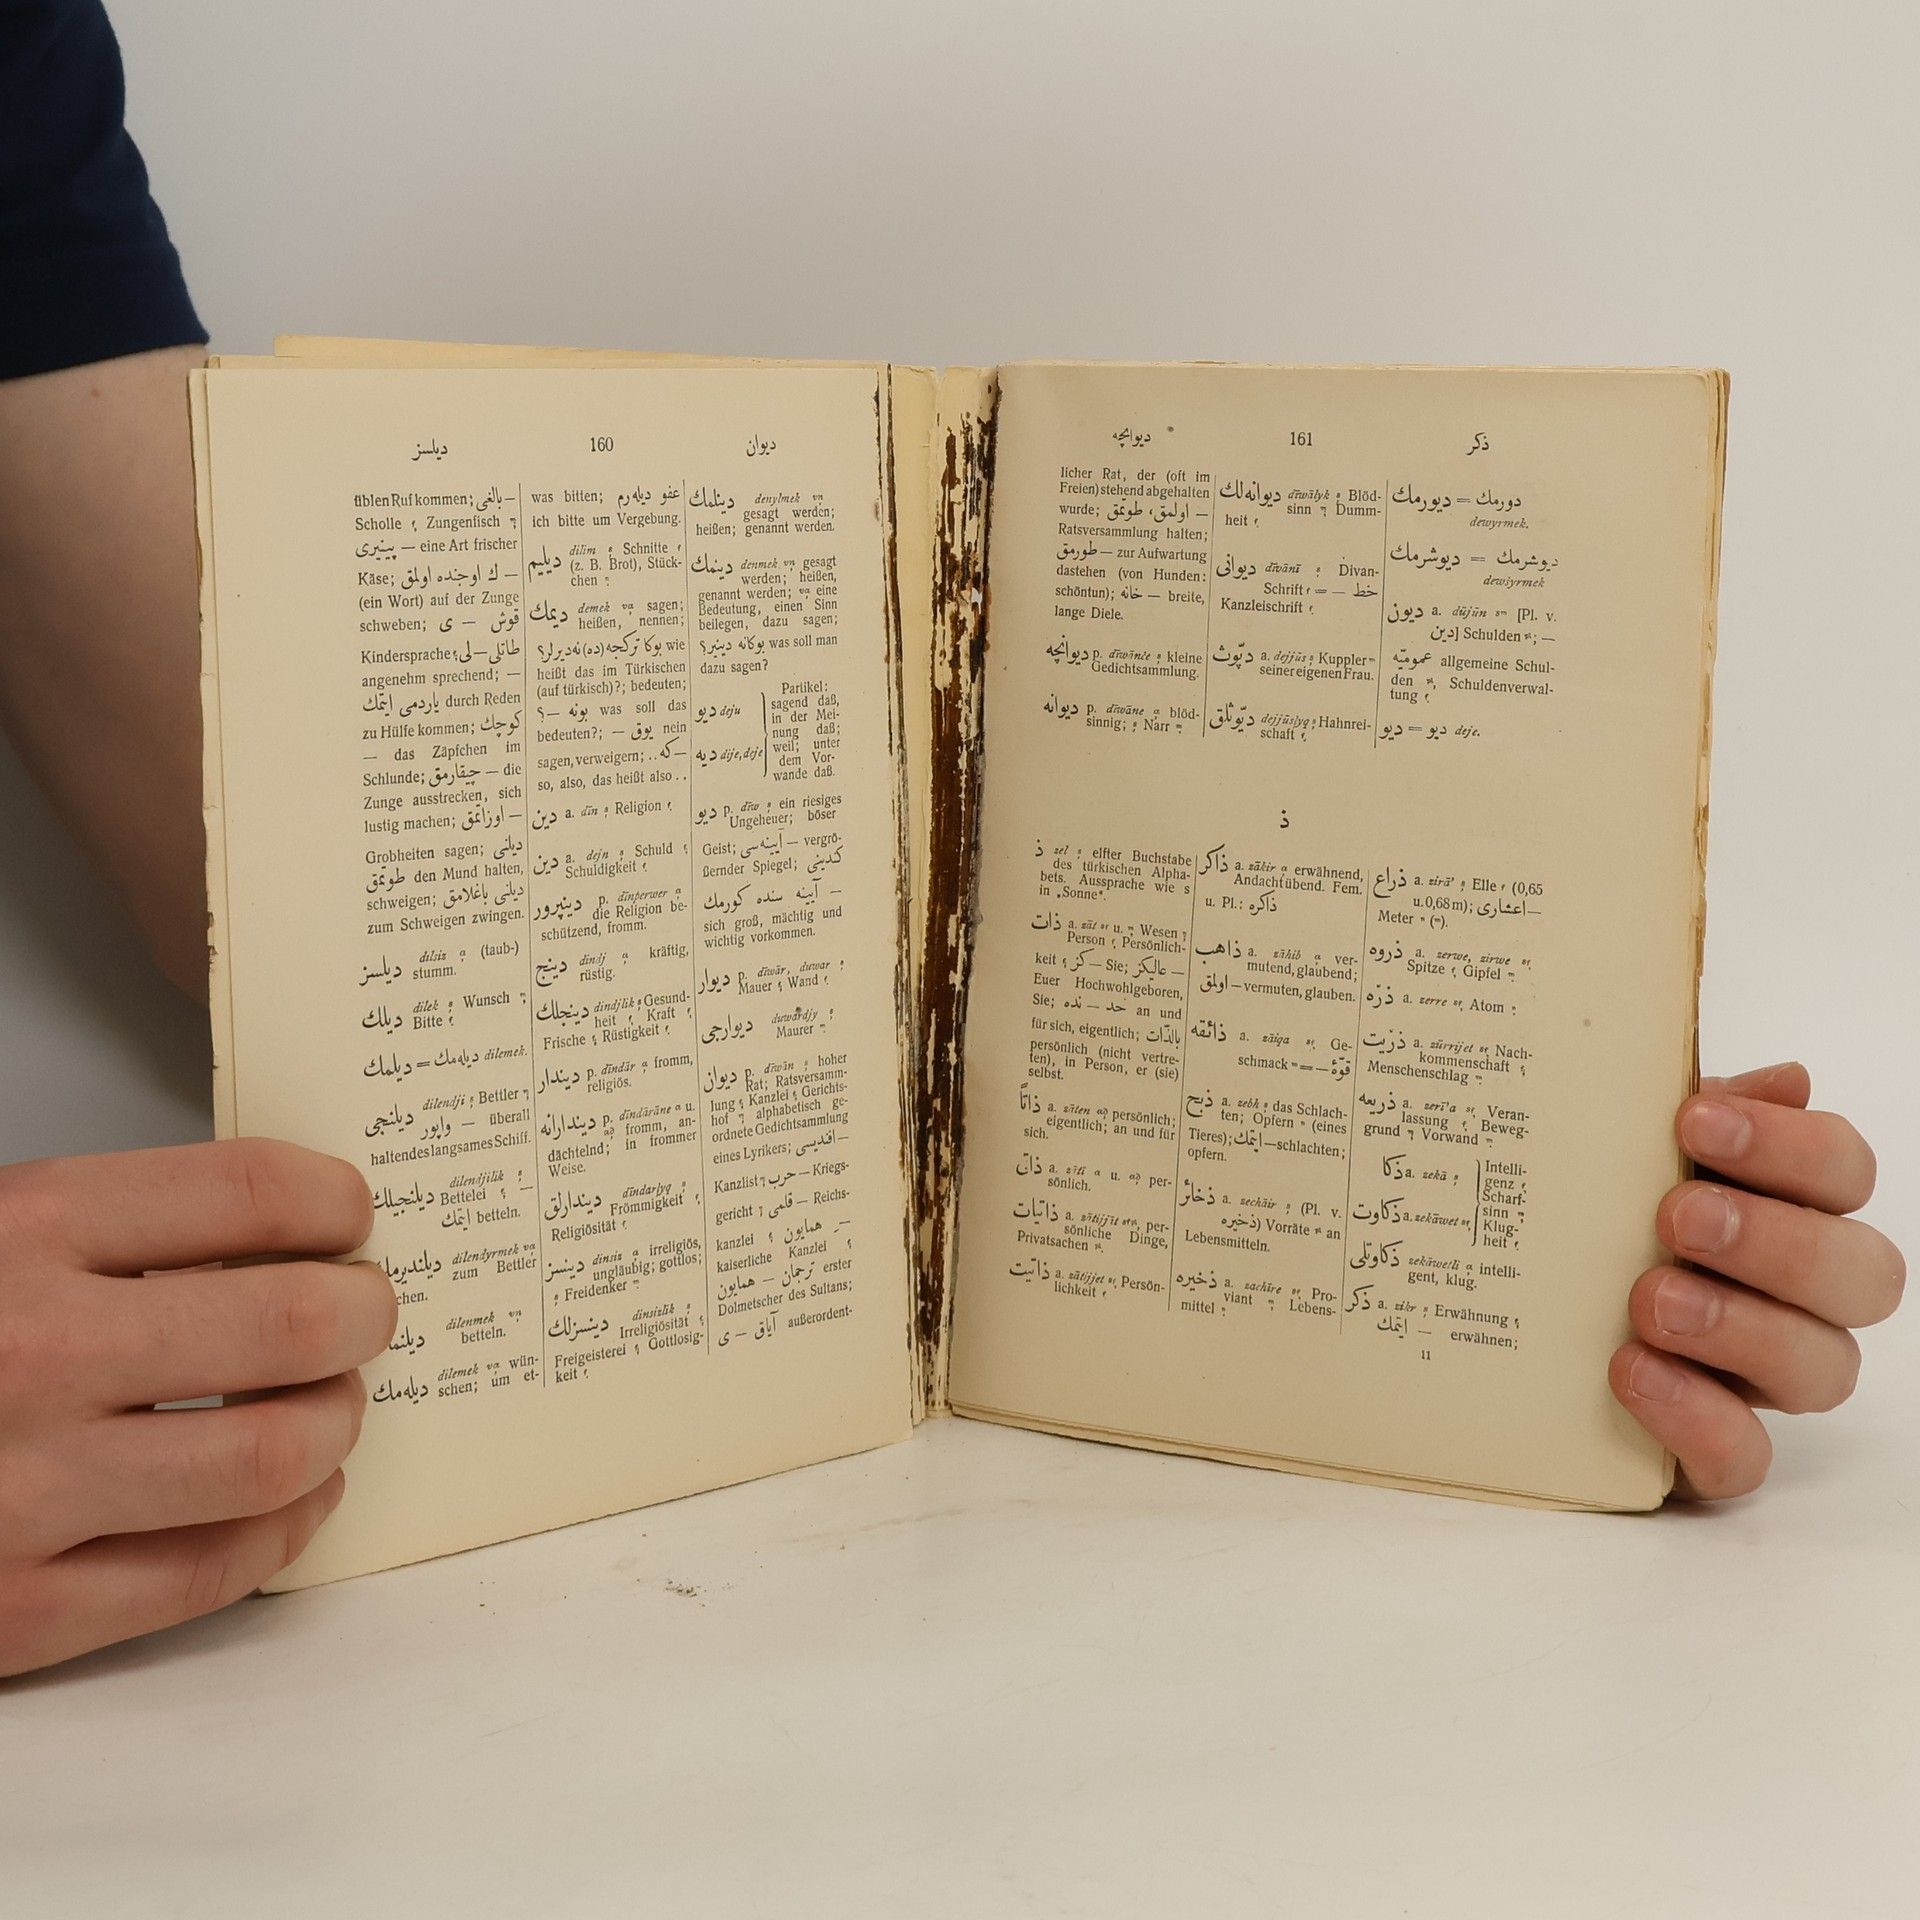 ديلسز 160 ديوان
üblen Ruf kommen; بالغى —
Scholle f, Zungenfisch m
پينيرى — eine Art frischer
Käse; ك اوجنده اولمق —
(ein Wort) auf der Zunge
schweben; قوش — ى
Kindersprache f; طاتلى — لى
angenehm sprechend; —
ياردمى ايتمك durch Reden
zu Hülfe kommen; كوچك
— das Zäpfchen im
Schlunde; چيقارمق — die
Zunge ausstrecken, sich
lustig machen; اوزاتمق —
Grobheiten sagen; ديلنى
طوتمق den Mund halten,
schweigen; ديلنى باغلامق
zum Schweigen zwingen.
ديلسز dilsiz a (taub-)
stumm.
ديلك dilek s Wunsch m,
Bitte f.
ديلمك = ديله‌مك dilemek.
ديلنجى dilendji s Bettler m
واپور — überall
haltendes langsames Schiff.
ديلنجيلك dilendjilik s
Bettelei f; —
ايتمك betteln.
dilendyrmek va
zum Bettler
chen.
dilenmek vn
betteln.
ديله‌مك dilemek va wün-
schen; um et-
was bitten; عفو ديله‌رم
ich bitte um Vergebung.
ديليم dilim s Schnitte f
(z. B. Brot), Stück-
chen n.
ديمك demek va sagen;
heißen, nennen;
بوكا تركجه (ده) نه ديرلر؟ wie
heißt das im Türkischen
(auf türkisch)?; bedeuten;
بونه —؟ was soll das
bedeuten?; — يوق nein
sagen, verweigern; . . كه —
so, also, das heißt also . .
دين a. dīn s Religion f.
دين a. dejn s Schuld f
Schuldigkeit f.
دينپرور p. dīnperwer a
die Religion be-
schützend, fromm.
دينج dindj a kräftig,
rüstig.
دينجلك dindjlik s Gesund-
heit f Kraft f
Frische f Rüstigkeit f.
ديندار p. dīndār a fromm,
religiös.
ديندارانه p. dīndārāne a u.
ad fromm, an-
dächtelnd; in frommer
Weise.
ديندارلق dīndarlyq s
Frömmigkeit f
Religiösität f.
دينسز dinsiz a irreligiös,
ungläubig; gottlos;
s Freidenker m.
دينسزلك dinsizlik s
Irreligiösität f
Freigeisterei f Gottlosig-
keit f.
دينلمك denylmek vn
gesagt werden;
heißen; genannt werden.
دينمك denmek vn gesagt
werden; heißen,
genannt werden; va eine
Bedeutung, einen Sinn
beilegen, dazu sagen;
بوكانه دينير؟ was soll man
dazu sagen?
ديو deju
ديه dije, deje
Partikel:
sagend daß,
in der Mei-
nung daß;
weil; unter
dem Vor-
wande daß.
ديو p. dīw s ein riesiges
Ungeheuer; böser
Geist; آيينه‌سى — vergrö-
ßernder Spiegel; كندينى
آيينه سنده كورمك —
sich groß, mächtig und
wichtig vorkommen.
ديوار p. dīwār, duwar s
Mauer f Wand f.
ديوارجى duwardjy s
Maurer m.
ديوان p. dīwān s hoher
Rat; Ratsversamm-
lung f Kanzlei f Gerichts-
hof m alphabetisch ge-
ordnete Gedichtsammlung
eines Lyrikers; افنديسى —
Kanzlist m حرب — Kriegs-
gericht n قلمى — Reichs-
kanzlei f همايون —
kaiserliche Kanzlei f
همايون — ترجمان erster
Dolmetscher des Sultans;
ى — آياق außerordent-
ديوانچه 161 ذكر
licher Rat, der (oft im
Freien) stehend abgehalten
wurde; اولمق، طوتمق —
Ratsversammlung halten;
طورمق — zur Aufwartung
dastehen (von Hunden:
schöntun); خانه — breite,
lange Diele.
ديوانچه p. dīwānče s kleine
Gedichtsammlung.
ديوانه p. dīwāne a blöd-
sinnig; s Narr m.
ديوانه‌لك dīwālyk s Blöd-
sinn m Dumm-
heit f.
ديوانى dīvānī s Divan-
Schrift f = — خط
Kanzleischrift f.
ديّوث a. dejjūs s Kuppler m
seiner eigenen Frau.
ديّوثلق dejjūslyq s Hahnrei-
schaft f.
دورمك = ديورمك
dewyrmek.
ديوشرمك = ديوشرمك
dewšyrmek
ديون a. düjūn spl [Pl. v.
دين] Schulden pl; —
عموميّه allgemeine Schul-
den pl, Schuldenverwal-
tung f.
ديو = ديو deje.
ذ
ذ zel s elfter Buchstabe
des türkischen Alpha-
bets. Aussprache wie s
in „Sonne“.
ذات a. zāt sf u. m Wesen n
Person f Persönlich-
keit f كز — Sie; عاليكز —
Euer Hochwohlgeboren,
Sie; حد — نده an und
für sich, eigentlich; بالذّات
persönlich (nicht vertre-
ten), in Person, er (sie)
selbst.
ذاتًا a. zāten ad persönlich;
eigentlich; an und für
sich.
ذاتى a. zātī a u. ad per-
sönlich.
ذاتيات a. zātijjāt sfpl per-
sönliche Dinge,
Privatsachen pl.
ذاتيت a. zātijjet sf Persön-
lichkeit f.
ذاكر a. zākir a erwähnend,
Andacht übend. Fem.
u. Pl.: ذاكره
ذاهب a. zāhib a ver-
mutend, glaubend;
اولمق — vermuten, glauben.
ذائقه a. zāiqa sf Ge-
schmack m = — قوّهٔ
ذبح a. zebh s das Schlach-
ten; Opfern n (eines
Tieres); ايتمك — schlachten;
opfern.
ذخائر a. zechāir s (Pl. v.
ذخيره) Vorräte pl an
Lebensmitteln.
ذخيره a. zachīre sf Pro-
viant m Lebens-
mittel n.
ذراع a. zirā‘ s Elle f (0,65
u. 0,68 m); اعشارى —
Meter n (m).
ذروه a. zerwe, zirwe sf
Spitze f Gipfel m
ذرّه a. zerre sf Atom n
ذرّيت a. zürrijet sf Nach-
kommenschaft f
Menschenschlag m.
ذريعه a. zerī‘a sf Veran-
lassung f Beweg-
grund m Vorwand m.
ذكا a. zekā s
ذكاوت a. zekāwet sf
Intelli-
genz f
Scharf-
sinn m
Klug-
heit f.
ذكاوتلى zekāwetli a intelli-
gent, klug.
ذكر a. zikr s Erwähnung f
ايتمك — erwähnen;
11